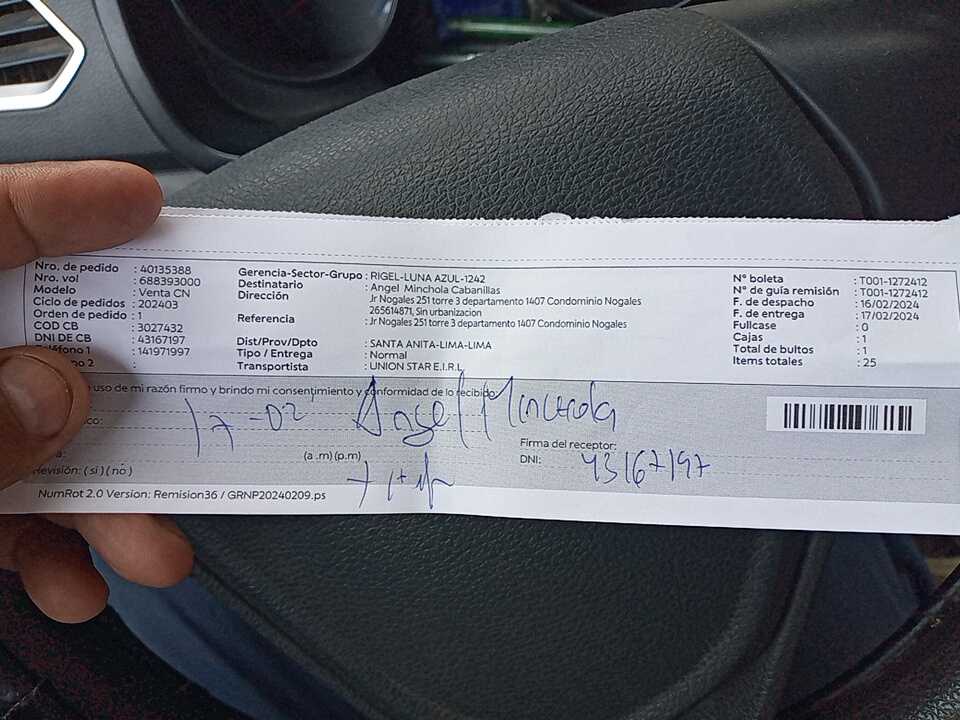 Nro. de pedido : 40135388
Nro. vol : 688393000
Modelo : Venta CN
Ciclo de pedidos : 202403
Orden de pedido : 1
COD CB : 3027432
DNI DE CB : 43167197
léfono 1 : 141971997
o 2 :
Gerencia-Sector-Grupo : RIGEL-LUNA AZUL-1242
Destinatario : Angel Minchola Cabanillas
Dirección Jr Nogales 251 torre 3 departamento 1407 Condominio Nogales
265614871, Sin urbanizacion
Referencia : Jr Nogales 251 torre 3 departamento 1407 Condominio Nogales
Dist/Prov/Dpto : SANTA ANITA-LIMA-LIMA
Tipo / Entrega : Normal
Transportista : UNION STAR E.I.R.L
N° boleta : T001-1272412
N° de guía remisión : T001-1272412
F. de despacho : 16/02/2024
F. de entrega : 17/02/2024
Fullcase : 0
Cajas : 1
Total de bultos : 1
Items totales : 25
uso de mi razón firmo y brindo mi consentimiento y conformidad de lo recibido
17-02 Angel Minchola
co:
Firma del receptor:
a: (a .m) (p.m) DNI: 43167197
Revisión: ( si ) ( no )
NumRot 2.0 Version: Remision36 / GRNP20240209.ps